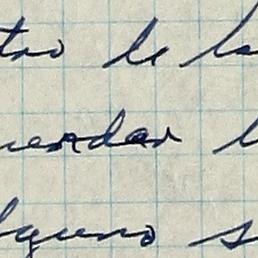 tro de la
uerdan l
lguno s